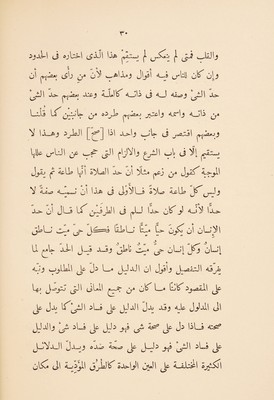 ٣٠
والقلب فمتى لم ينعكس لم يستقِمْ هذا الّذى اختاره فى الحدود
وإن كان للناس فيه أقوال ومذاهب لأنّ من رأى بعضهم أن
حدّ الشىء وصفه له فى ذاته كالعلّة وعند بعضهم حدّ الشىْ
من ذاته واسمه واعتبر بعضهم طرده من جانبَيْن كما قُلْنا
وبعضهم اقتصر فى جانب واحد اذا [صحّ] الطرد وهذا لا
يستقيم إلّا فى باب الشرع والالزام التى حجب عن الناس عللها
الموجبة كقول من زعم مثلًا أنّ حدّ الصلاة أنّها طاعة ثم يقول
وليس كلّ طاعة صلاةً فالأوْلَى فى هذا أن نسمّيه صفةً لا
حدًّا لأنّه لو كان حدًّا لسلم فى الطرفَيْن كما قال أنّ حدّ
الإنسان أن يكون حيًّا ميّتًا ناطقًا فكلّ حىّ ميّت ناطق
إنسان وكلّ إنسان حىّ ميّت ناطق وقد قيل الحدّ جامع لما
يفرّقه التفصيل وأقول ان الدليل ما دلّ على المطلوب ونبّه
على المقصود كائنًا ما كان من جميع المعانى التى تتوصّل بها
الى المدلول عليه وقد يدلّ الدليل على فساد الشىْ كما يدل على
صحّته فاذا دل على صحة شىْ فهو دليل على فساد شىْ والدليل
على فساد الشىْ فهو دليل على صحّة ضدّه ويدلّ الدلائل
الكثيرة المختلفة على العين الواحدة كالطُرق المؤدّية الى مكان